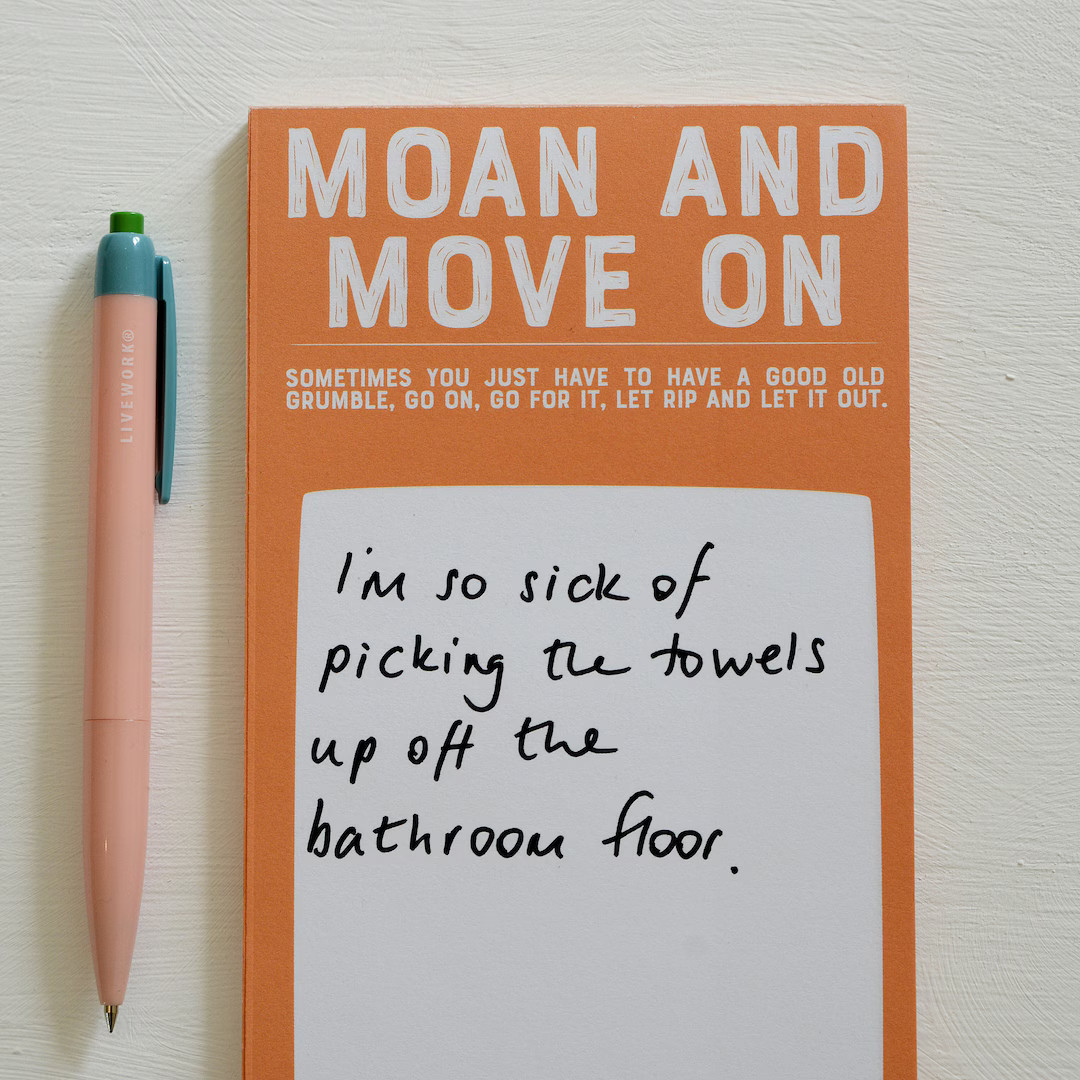 LIVEWORK®
MOAN AND
MOVE ON
SOMETIMES YOU JUST HAVE TO HAVE A GOOD OLD
GRUMBLE, GO ON, GO FOR IT, LET RIP AND LET IT OUT.
I'm so sick of
picking the towels
up off the
bathroom floor.